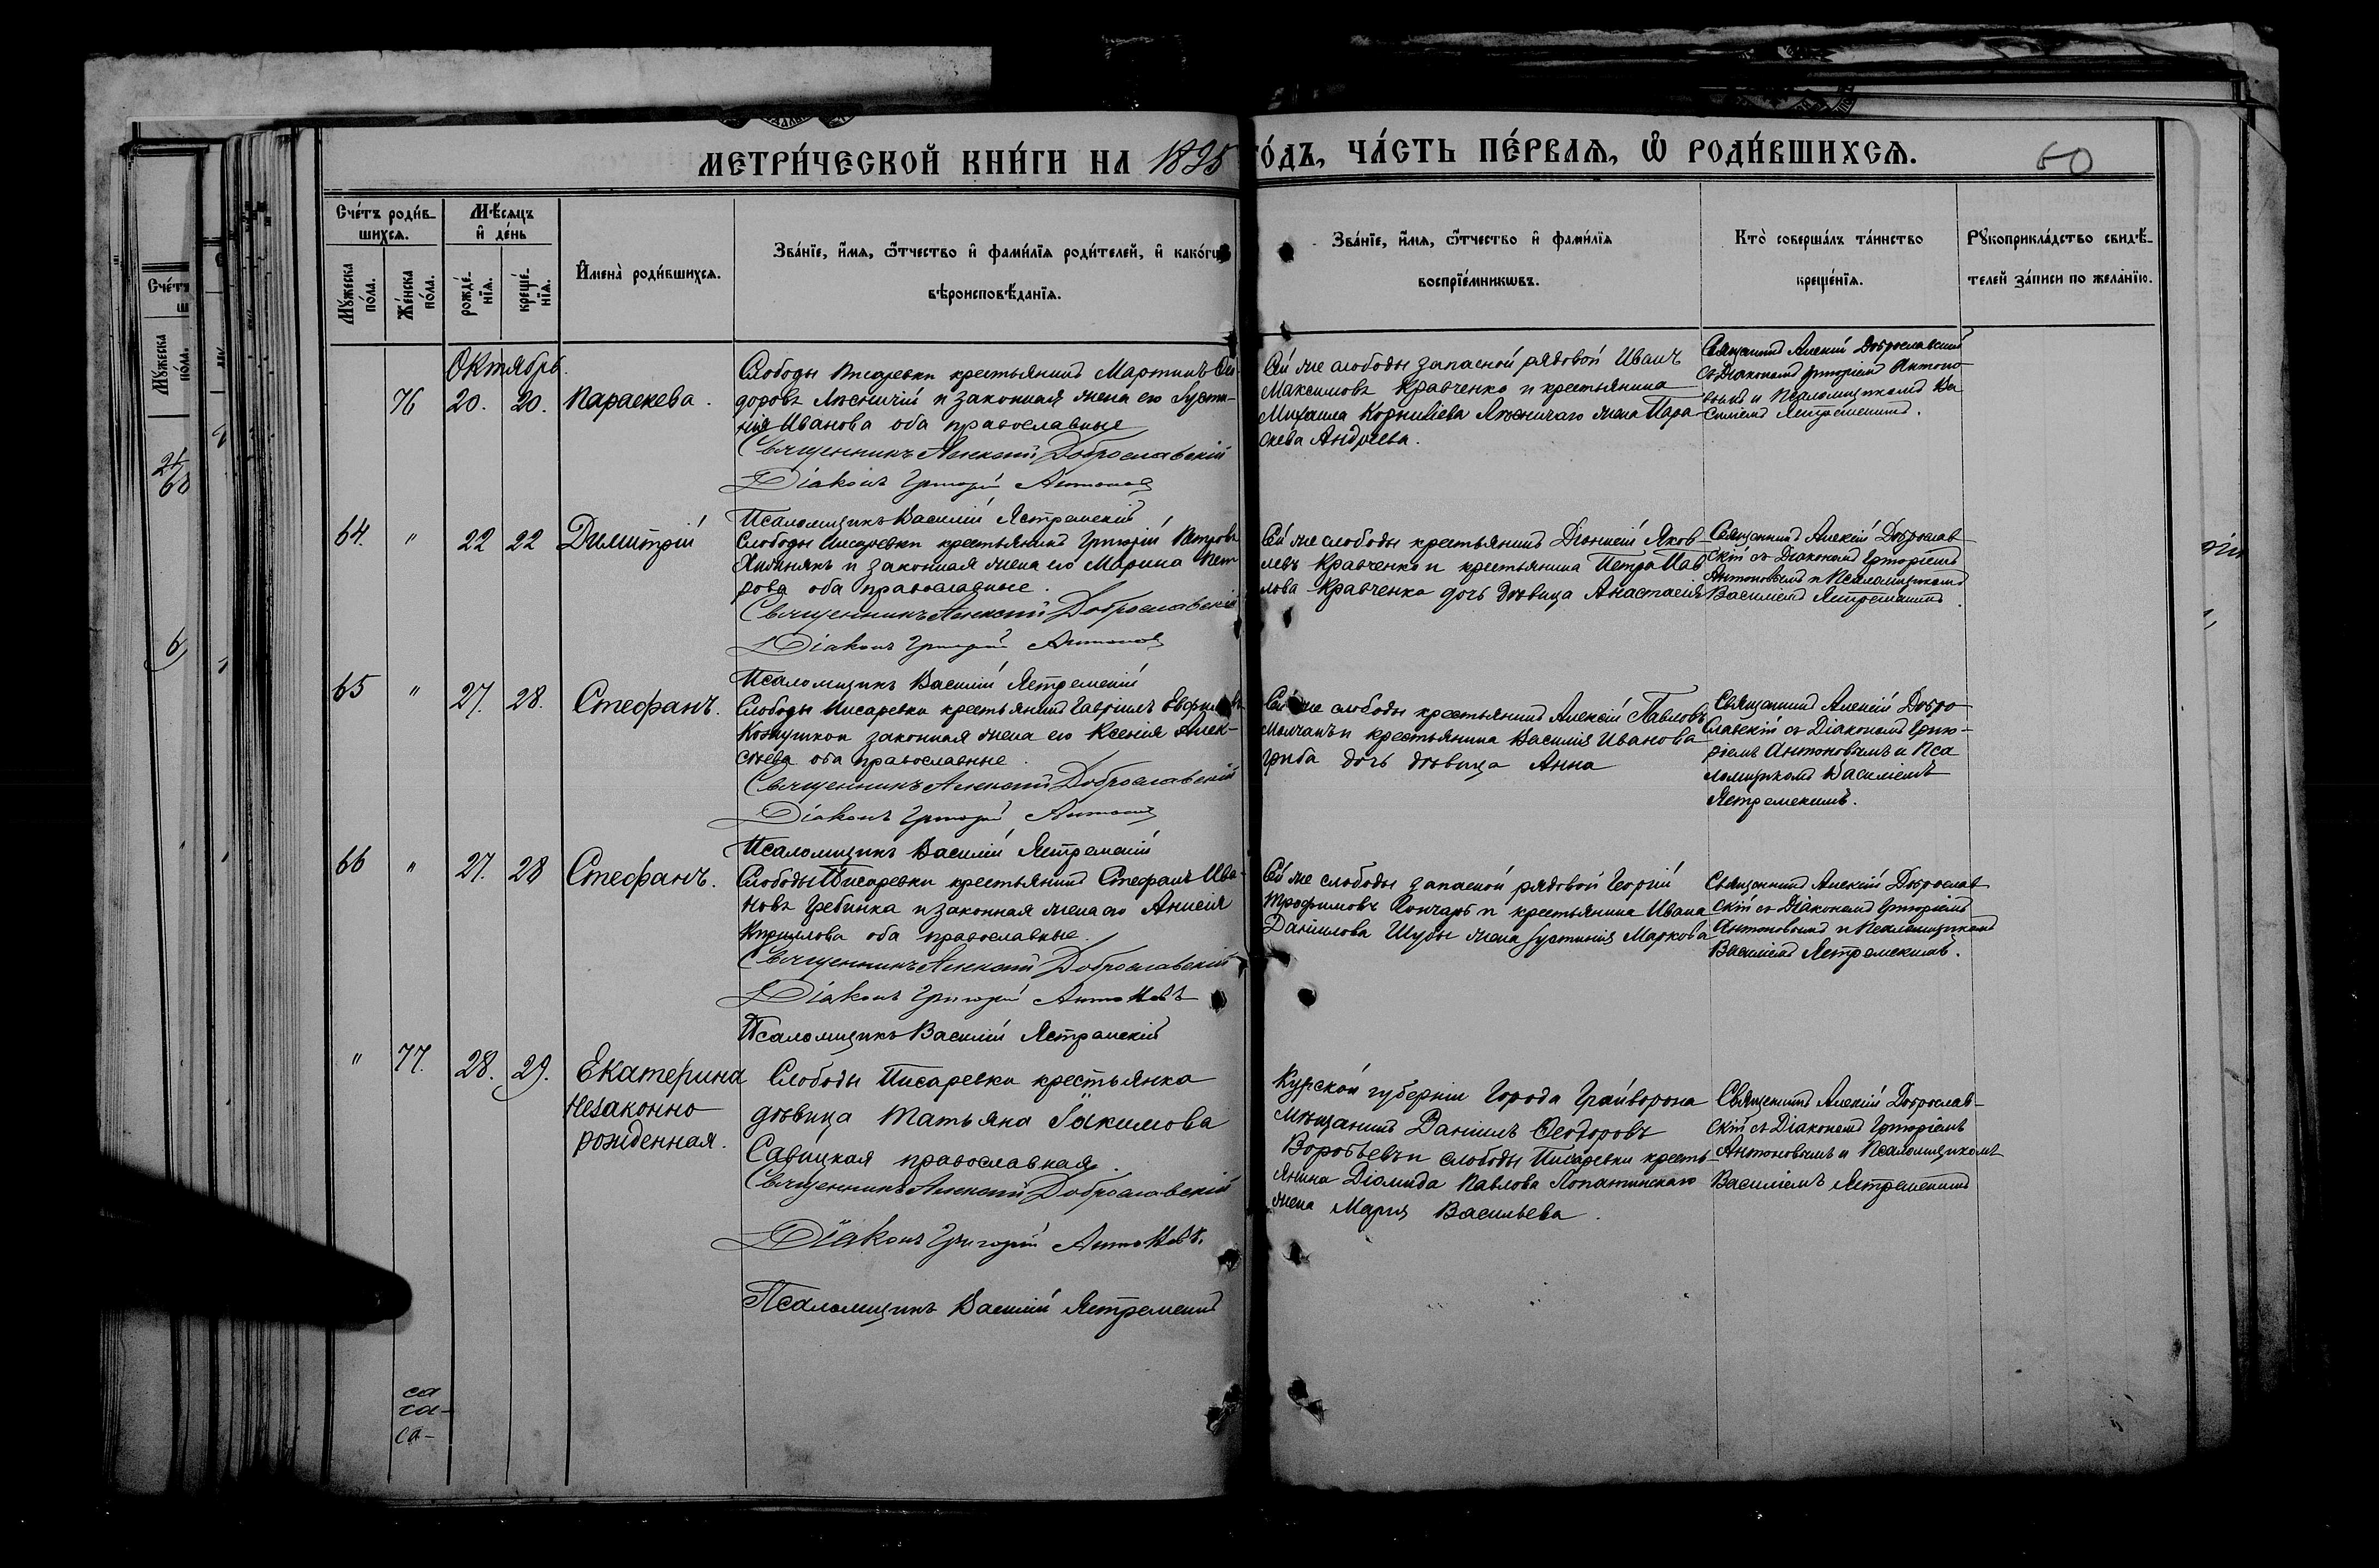 МЕТРИ́ЧЕСКОЙ КНИ́ГИ НА 1895
ГО́ДЪ, ЧА́СТЬ ПЕ́РВАѦ, Ѡ҆ РОДИ́ВШИХСѦ.
60
Сче́тъ роди́в-
шихсѧ.
Мѣ́сѧцъ
и҆ де́нь
Мꙋ́жеска
по́ла.
Же́нска
по́ла.
рожде́-
нїѧ.
креще́-
нїѧ.
И҆мена̀ роди́вшихсѧ.
Зва́нїе, и҆́мѧ, ѻ҆́тчество и҆ фами́лїѧ роди́телей, и҆ како́гѡ
вѣроисповѣ́данїѧ.
Зва́нїе, и҆́мѧ, ѻ҆́тчество и҆ фами́лїѧ
воспрїе́мникѡвъ.
Кто̀ соверша́лъ та́инство
креще́нїѧ.
Рꙋкоприкла́дство свидѣ́-
телей за́писи по жела́нїю.
Октябрь.
76 20. 20. Параскева.
Слободы Писаревки крестьянинъ Мартинъ Ѳео-
доровъ Лѣсничій и законная жена его Іусти-
нія Иванова оба православные
Священникъ Алексій Доброславскій
Діаконъ Григорій Антоновъ
Псаломщикъ Василій Ястремскій
Сей же слободы запасной рядовой Иванъ
Максимовъ Кравченко и крестьянина
Михаила Корнилева Лѣсничаго жена Пара
скева Андреева.
Священникъ Алексій Доброславскій
съ Діакономъ Григоріемъ Антоно-
вымъ и Псаломщикомъ Ва
силіемъ Ястремскимъ.
64. " 22 22 Димитрій
Слободы Писаревки крестьянинъ Григорій Петровъ
и законная жена его Марина Пет
рова оба православные.
Священникъ Алексій Доброславскій
Діаконъ Григорій Антоновъ
Псаломщикъ Василій Ястремскій
Сей же слободы крестьянинъ Діонисій Яков-
левъ Кравченко и крестьянина Петра Пав
лова Кравченка дочь дѣвица Анастасія
Священникъ Алексій Доброслав-
скій съ Діакономъ Григоріемъ
Антоновымъ и Псаломщикомъ
Василіемъ Ястремскимъ.
65 " 27. 28. Стефанъ.
Слободы Писаревки крестьянинъ Гавріилъ
законная жена его Ксенія Алек-
сѣева оба православные.
Священникъ Алексій Доброславскій
Діаконъ Григорій Антоновъ
Псаломщикъ Василій Ястремскій
Сей же слободы крестьянинъ Алексій Павловъ
Молчанъ и крестьянина Василія Иванова
Гриба дочь дѣвица Анна
Священникъ Алексій Добро
славскій съ Діакономъ Григо-
ріемъ Антоновымъ и Пса
ломщикомъ Василіемъ
Ястремскимъ.
66 " 27. 28 Стефанъ.
Слободы Писаревки крестьянинъ Стефанъ Ива-
новъ Гребинка и законная жена его Анисія
Кириллова оба православные.
Священникъ Алексій Доброславскій
Діаконъ Григорій Антоновъ
Псаломщикъ Василій Ястремскій
Сей же слободы запасной рядовой Георгій
Трофимовъ Гончаръ и крестьянина Ивана
Даніилова Шубы жена Іустинія Маркова
Священникъ Алексій Доброслав
скій съ Діакономъ Григоріемъ
Антоновымъ и Псаломщикомъ
Василіемъ Ястремскимъ.
" 77. 28. 29. Екатерина
незаконно
рожденная.
Слободы Писаревки крестьянка
дѣвица Татьяна Іакимова
Савицкая православная.
Священникъ Алексій Доброславскій
Діаконъ Григорій Антоновъ.
Псаломщикъ Василій Ястремскій
Курской губерніи Города Грайворона
мѣщанинъ Даніилъ Ѳеодоровъ
Воробьевъ и слободы Писаревки кресть-
янина Діомида Павлова Лопатинскаго
жена Марія Васильева.
Священникъ Алексій Доброслав-
скій съ Діакономъ Григоріемъ
Антоновымъ и Псаломщикомъ
Василіемъ Ястремскимъ
са
са-
са-